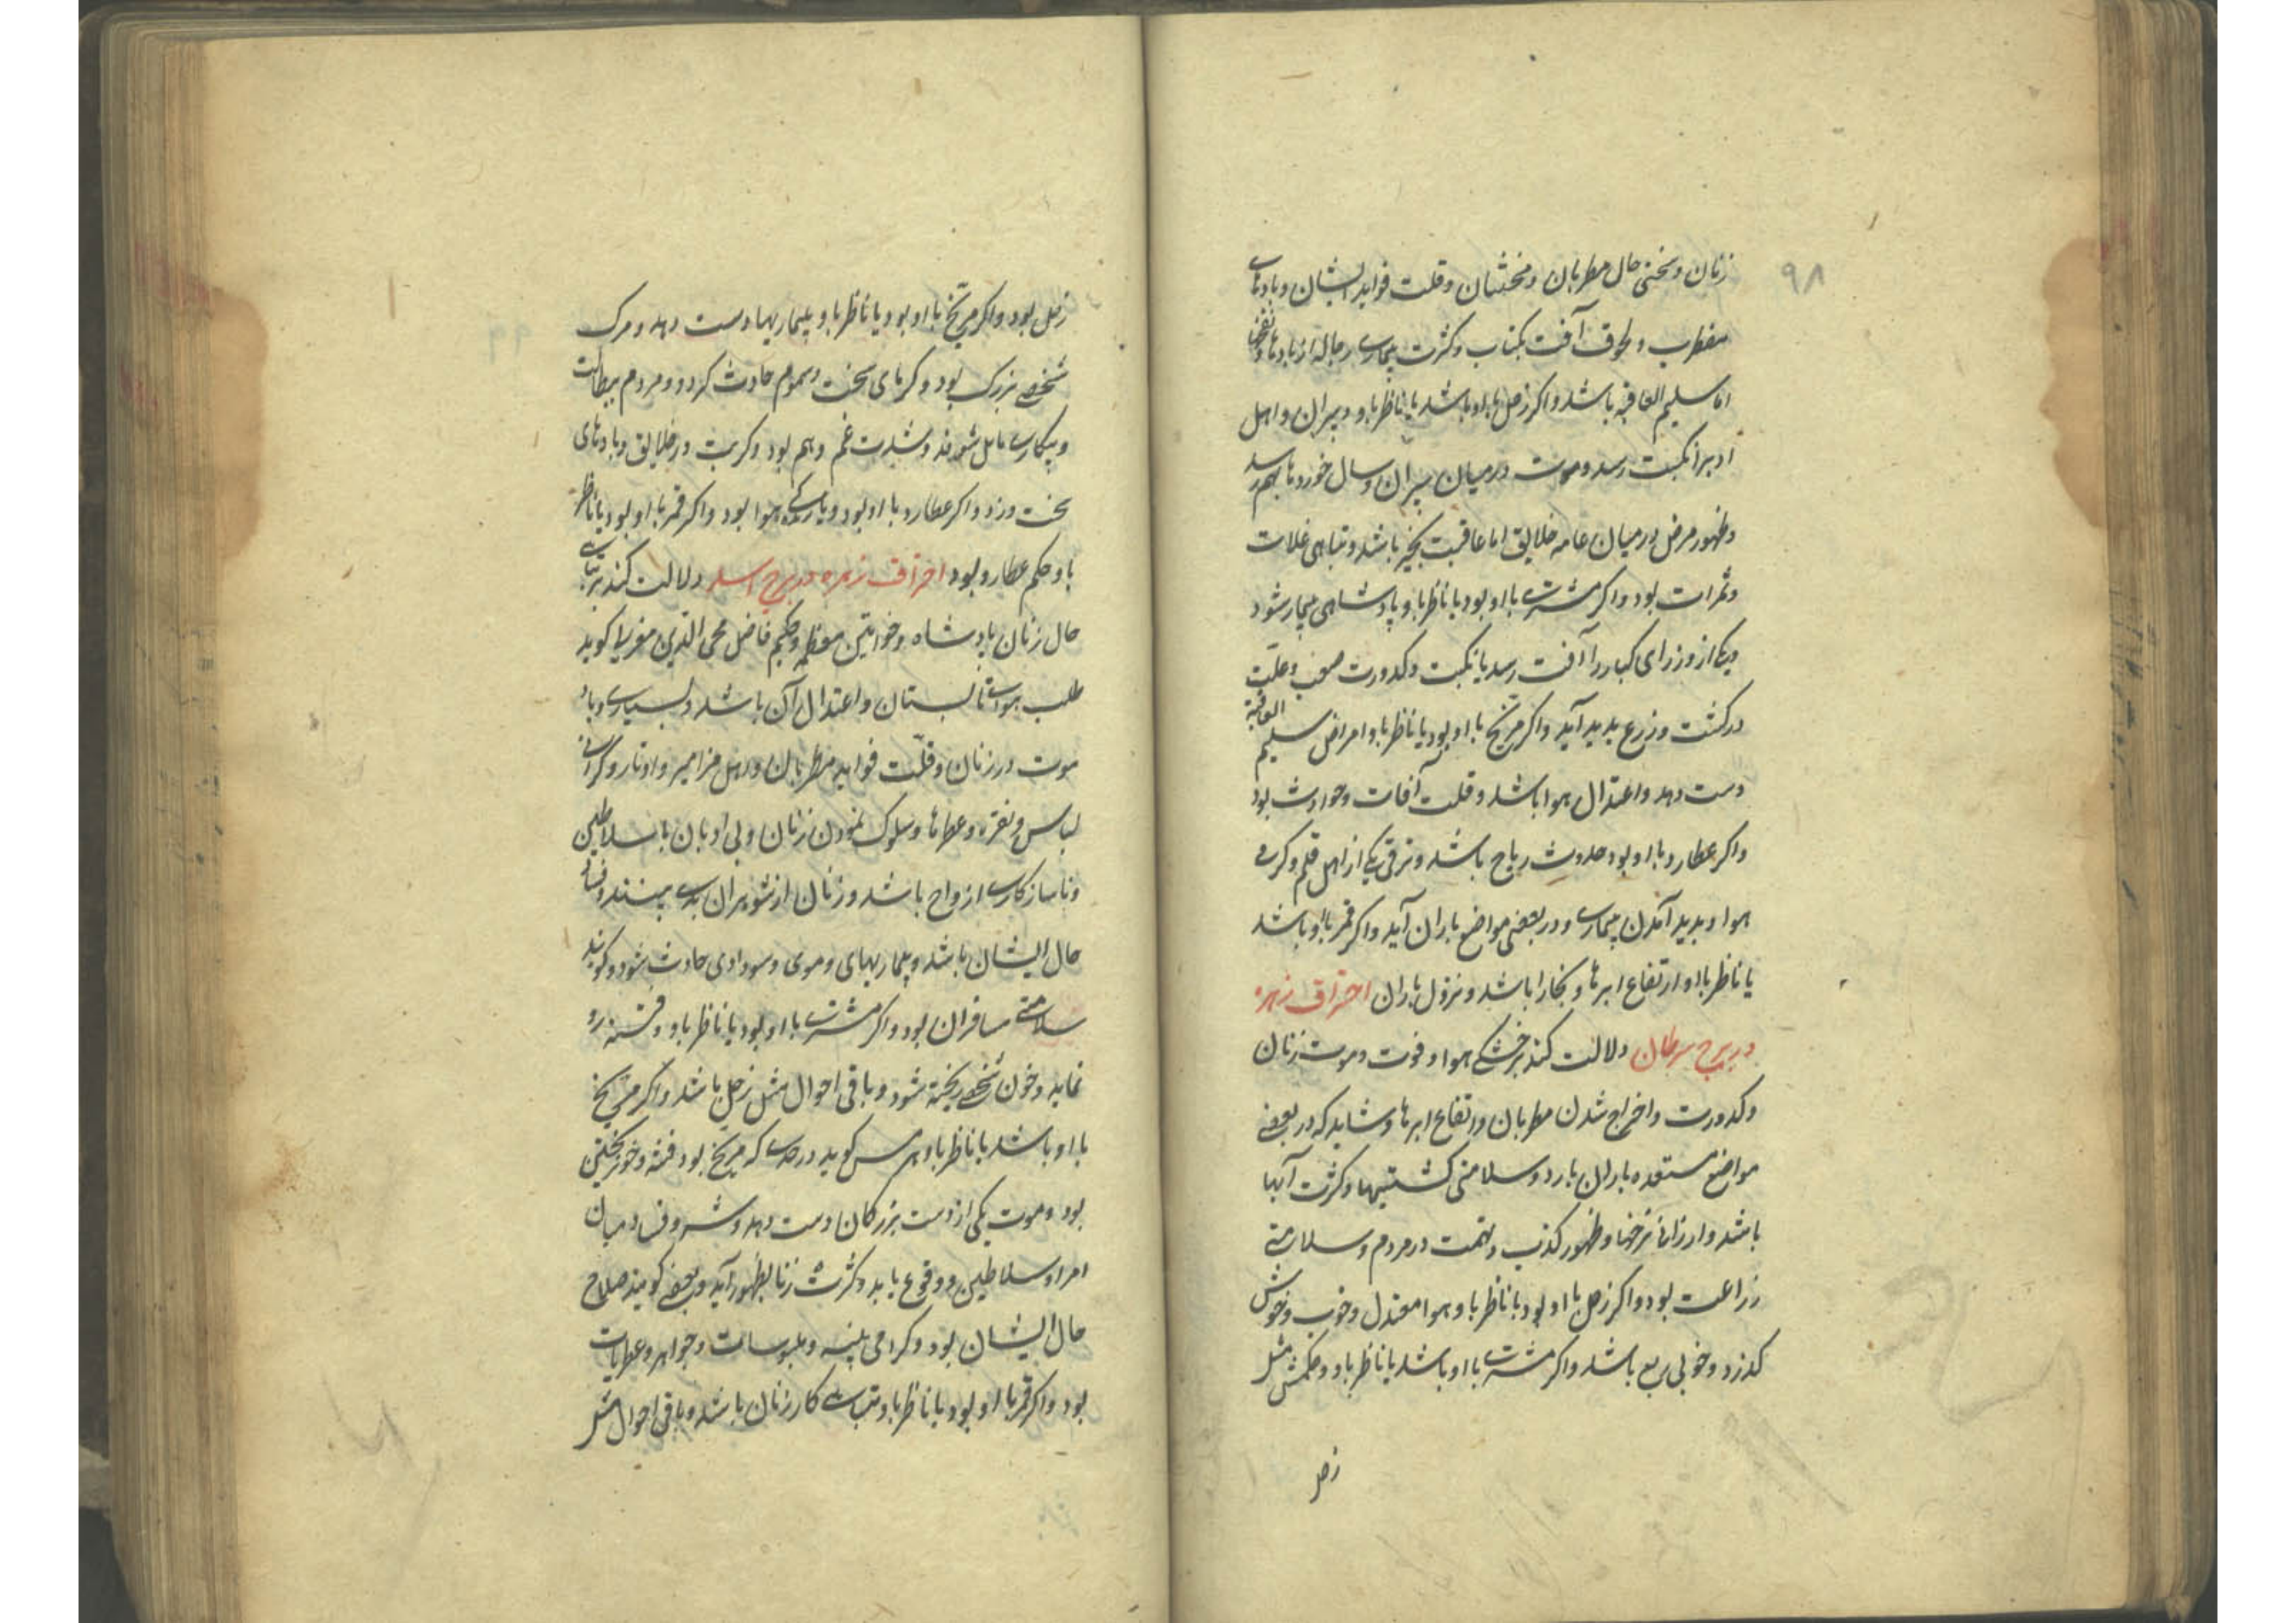 ۹۸
زنان و سختی حال مطربان و مخنثان و قلت فواید ایشان و بادهای
مضطرب و لحوق آفت بکتاب و کثرت بیماری رجاله از بادها
اما سلیم العاقبه باشد و اکر زحل با او باشد یا ناظر باو دبیران و اهل
ادبرا نکبت رسد و موت درمیان پیران و سال خوردها بهم رسد
و ظهور مرض درمیان عامه خلایق اما عاقبت بخیر باشد و تباهی غلات
و ثمرات بود و اکر مشتری با او بود یا ناظر باو پادشاهی بیمار شود
و یکی از وزرای کبار را آفت رسد یا نکبت و کدورت صعب و علت
در کشت و زرع پدید آید و اکر مریخ با او بود یا ناظر باو امراض سلیم العاقبة
دست دهد و اعتدال هوا باشد و قلت آفات و حوادث بود
و اکر عطارد با او بود حدوث ریاح باشد و ترقی یکی از اهل قلم و کرمی
هوا و پدید آمدن بیماری و در بعضی مواضع باران آید و اکر قمر با او باشد
یا ناظر با او ارتفاع ابرها و بخارا باشد و نزول باران احتراق زهره
در برج سرطان دلالت کند بر خشکی هوا و فوت و موت زنان
و کدورت و اخراج شدن مطربان و ارتفاع ابرها و شاید که در بعضی
مواضع مستعده باران بارد و سلامتی کشتیها و کثرت آبها
باشد و ارزانی نرخها و ظهور کذب و تهمت در مردم و سلامتی
زراعت بود و اکر زحل با او بود یا ناظر باو هوا معتدل و خوب و خوش
کذرد و خوبی ریع باشد و اکر مشتری با او باشد یا ناظر باو و حکمش مثل
زحل
زحل بود و اکر مریخ با او بود یا ناظر باو بیماریها دست دهد و مرک
شخصی بزرک بود و کرمای سخت و سموم حادث کردد و مردم ببطالت
و بیکاری مایل شوند و شدت غم و هم بود و کربت در خلایق و بادهای
سخت وزد و اکر عطارد با او بود هوا بود و اکر قمر با او بود یا ناظر
باو حکم عطارد بود احتراق زهره در برج اسد دلالت کند بر تباهی
حال زنان پادشاه و خواتین معظمه و حکیم فاضل محی الدین مغربی کوید
طلب هوای تابستان و اعتدال آن باشد و بسیاری وبا و
موت در زنان و قلّت فواید مطربان و اهل مزامیر و اوتار و کرانی
لباس و نقره و عطرها و سلوک نمودن زنان و بی ادبان با سلاطین
و ناسازکاری ازواج باشد و زنان از شوهران بدی بینند و فساد
حال ایشان باشد و بیماریهای دموی و سوداوی حادث شود و کویند
سلامتی مسافران بود و اکر مشتری با او بود یا ناظر باو و فتنه رو
نماید و خون شخصی ریخته شود و باقی احوال مثل زحل باشد و اکر مریخ
با او باشد یا ناظر باو هرمس کوید در حدی که مریخ بود فتنه و خون ریختن
بود و موت یکی از دست بزرکان دست دهد و شر و فساد میان
امرا و سلاطین و وقوع یابد و کثرت زنا بظهور آید و بعضی کویند صلاح
حال ایشان بود و کرامی پنبه و ملبوسات و جواهر و عطریات
بود و اکر قمر با او بود یا ناظر باو تباهی کار زنان باشد و باقی احوال مثل